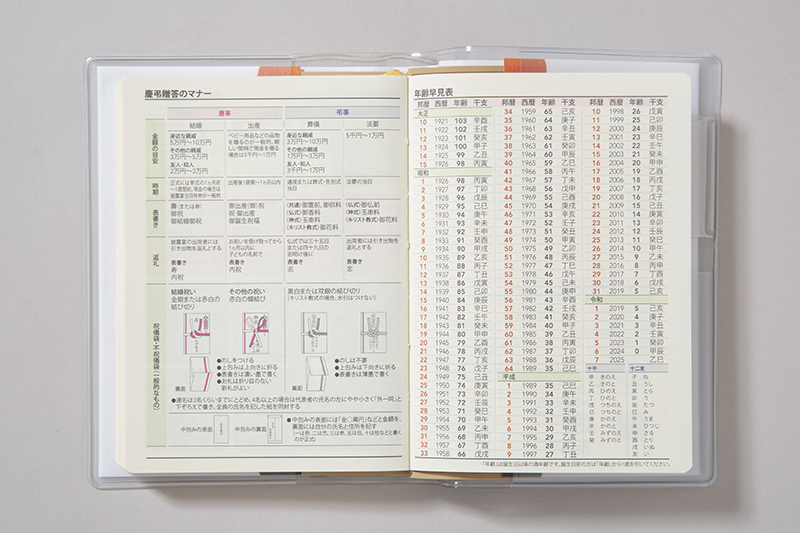 慶弔贈答のマナー
慶事
弔事
結婚
出産
葬儀
法要
金額の目安
身近な親戚
5万円〜10万円
その他の親戚
3万円〜5万円
友人・知人
2万円〜3万円
ベビー用品などの品物
を贈るのが一般的。親
しい間柄で現金を贈る
場合は5千円〜1万円
身近な親戚
3万円〜10万円
その他の親戚
1万円〜3万円
友人・知人
3千円〜1万円
5千円〜1万円
時期
正式には挙式の1ヵ月前
〜1週間前。現金の場合は
披露宴当日持参が一般的
出産後1週間〜1ヵ月以内
通夜または葬式・告別式
当日
法要の当日
表書き
壽(または寿)
御祝
御結婚御祝
御出産(御)祝
祝 御出産
御誕生祝福
(共通)御霊前、御供料
(仏式)御香料
(神式)玉串料
(キリスト教式)御花料
(仏式)御仏前
(神式)玉串料
(キリスト教式)御花料
返礼
披露宴の出席者には
引き出物を返礼とする
表書き
寿
内祝
お祝いを受け取ってから
1ヵ月以内に
子どもの名前で
表書き
内祝
仏式では三十五日
または四十九日の
忌明け後に
表書き
志
出席者には引き出物を
返礼とする
表書き
志
祝儀袋・不祝儀袋(一般的なもの)
結婚祝い
金銀または赤白の
結び切り
その他の祝い
赤白の蝶結び
黒白または双銀の結び切り
(キリスト教式の場合、水引はつけない)
裏面
●のしをつける
●上包みは上向きに折る
●表書きは濃い墨で書く
●お札は折り目のない
新札がよい
裏面
●のしは不要
●上包みは下向きに折る
●表書きは薄墨で書く
●連名は3名くらいまでにとどめ、4名以上の場合は代表者の氏名の左にやや小さく「外一同」と
下ぞろえで書き、全員の氏名を記した紙を同封する
中包みの表面
中包みの裏面
●中包みの表面には「金○萬円」などと金額を、
裏面には自分の氏名と住所を記す
(一は壱、二は弐、三は参、五は伍、十は拾などと書く
のが正式)
年齢早見表
邦暦 西暦 年齢 干支
大正
10 1921 103 辛酉
11 1922 102 壬戌
12 1923 101 癸亥
13 1924 100 甲子
14 1925 99 乙丑
15 1926 98 丙寅
昭和
1 1926 98 丙寅
2 1927 97 丁卯
3 1928 96 戊辰
4 1929 95 己巳
5 1930 94 庚午
6 1931 93 辛未
7 1932 92 壬申
8 1933 91 癸酉
9 1934 90 甲戌
10 1935 89 乙亥
11 1936 88 丙子
12 1937 87 丁丑
13 1938 86 戊寅
14 1939 85 己卯
15 1940 84 庚辰
16 1941 83 辛巳
17 1942 82 壬午
18 1943 81 癸未
19 1944 80 甲申
20 1945 79 乙酉
21 1946 78 丙戌
22 1947 77 丁亥
23 1948 76 戊子
24 1949 75 己丑
25 1950 74 庚寅
26 1951 73 辛卯
27 1952 72 壬辰
28 1953 71 癸巳
29 1954 70 甲午
30 1955 69 乙未
31 1956 68 丙申
32 1957 67 丁酉
33 1958 66 戊戌
邦暦 西暦 年齢 干支
34 1959 65 己亥
35 1960 64 庚子
36 1961 63 辛丑
37 1962 62 壬寅
38 1963 61 癸卯
39 1964 60 甲辰
40 1965 59 乙巳
41 1966 58 丙午
42 1967 57 丁未
43 1968 56 戊申
44 1969 55 己酉
45 1970 54 庚戌
46 1971 53 辛亥
47 1972 52 壬子
48 1973 51 癸丑
49 1974 50 甲寅
50 1975 49 乙卯
51 1976 48 丙辰
52 1977 47 丁巳
53 1978 46 戊午
54 1979 45 己未
55 1980 44 庚申
56 1981 43 辛酉
57 1982 42 壬戌
58 1983 41 癸亥
59 1984 40 甲子
60 1985 39 乙丑
61 1986 38 丙寅
62 1987 37 丁卯
63 1988 36 戊辰
64 1989 35 己巳
平成
1 1989 35 己巳
2 1990 34 庚午
3 1991 33 辛未
4 1992 32 壬申
5 1993 31 癸酉
6 1994 30 甲戌
7 1995 29 乙亥
8 1996 28 丙子
9 1997 27 丁丑
邦暦 西暦 年齢 干支
10 1998 26 戊寅
11 1999 25 己卯
12 2000 24 庚辰
13 2001 23 辛巳
14 2002 22 壬午
15 2003 21 癸未
16 2004 20 甲申
17 2005 19 乙酉
18 2006 18 丙戌
19 2007 17 丁亥
20 2008 16 戊子
21 2009 15 己丑
22 2010 14 庚寅
23 2011 13 辛卯
24 2012 12 壬辰
25 2013 11 癸巳
26 2014 10 甲午
27 2015 9 乙未
28 2016 8 丙申
29 2017 7 丁酉
30 2018 6 戊戌
31 2019 5 己亥
令和
1 2019 5 己亥
2 2020 4 庚子
3 2021 3 辛丑
4 2022 2 壬寅
5 2023 1 癸卯
6 2024 0 甲辰
7 2025
十干
甲 きのえ
乙 きのと
丙 ひのえ
丁 ひのと
戊 つちのえ
己 つちのと
庚 かのえ
辛 かのと
壬 みずのえ
癸 みずのと
十二支
子 ね
丑 うし
寅 とら
卯 う
辰 たつ
巳 み
午 うま
未 ひつじ
申 さる
酉 とり
戌 いぬ
亥 い
「年齢」は誕生日以降の満年齢です。誕生日前の方は「年齢」から1歳を引いてください。